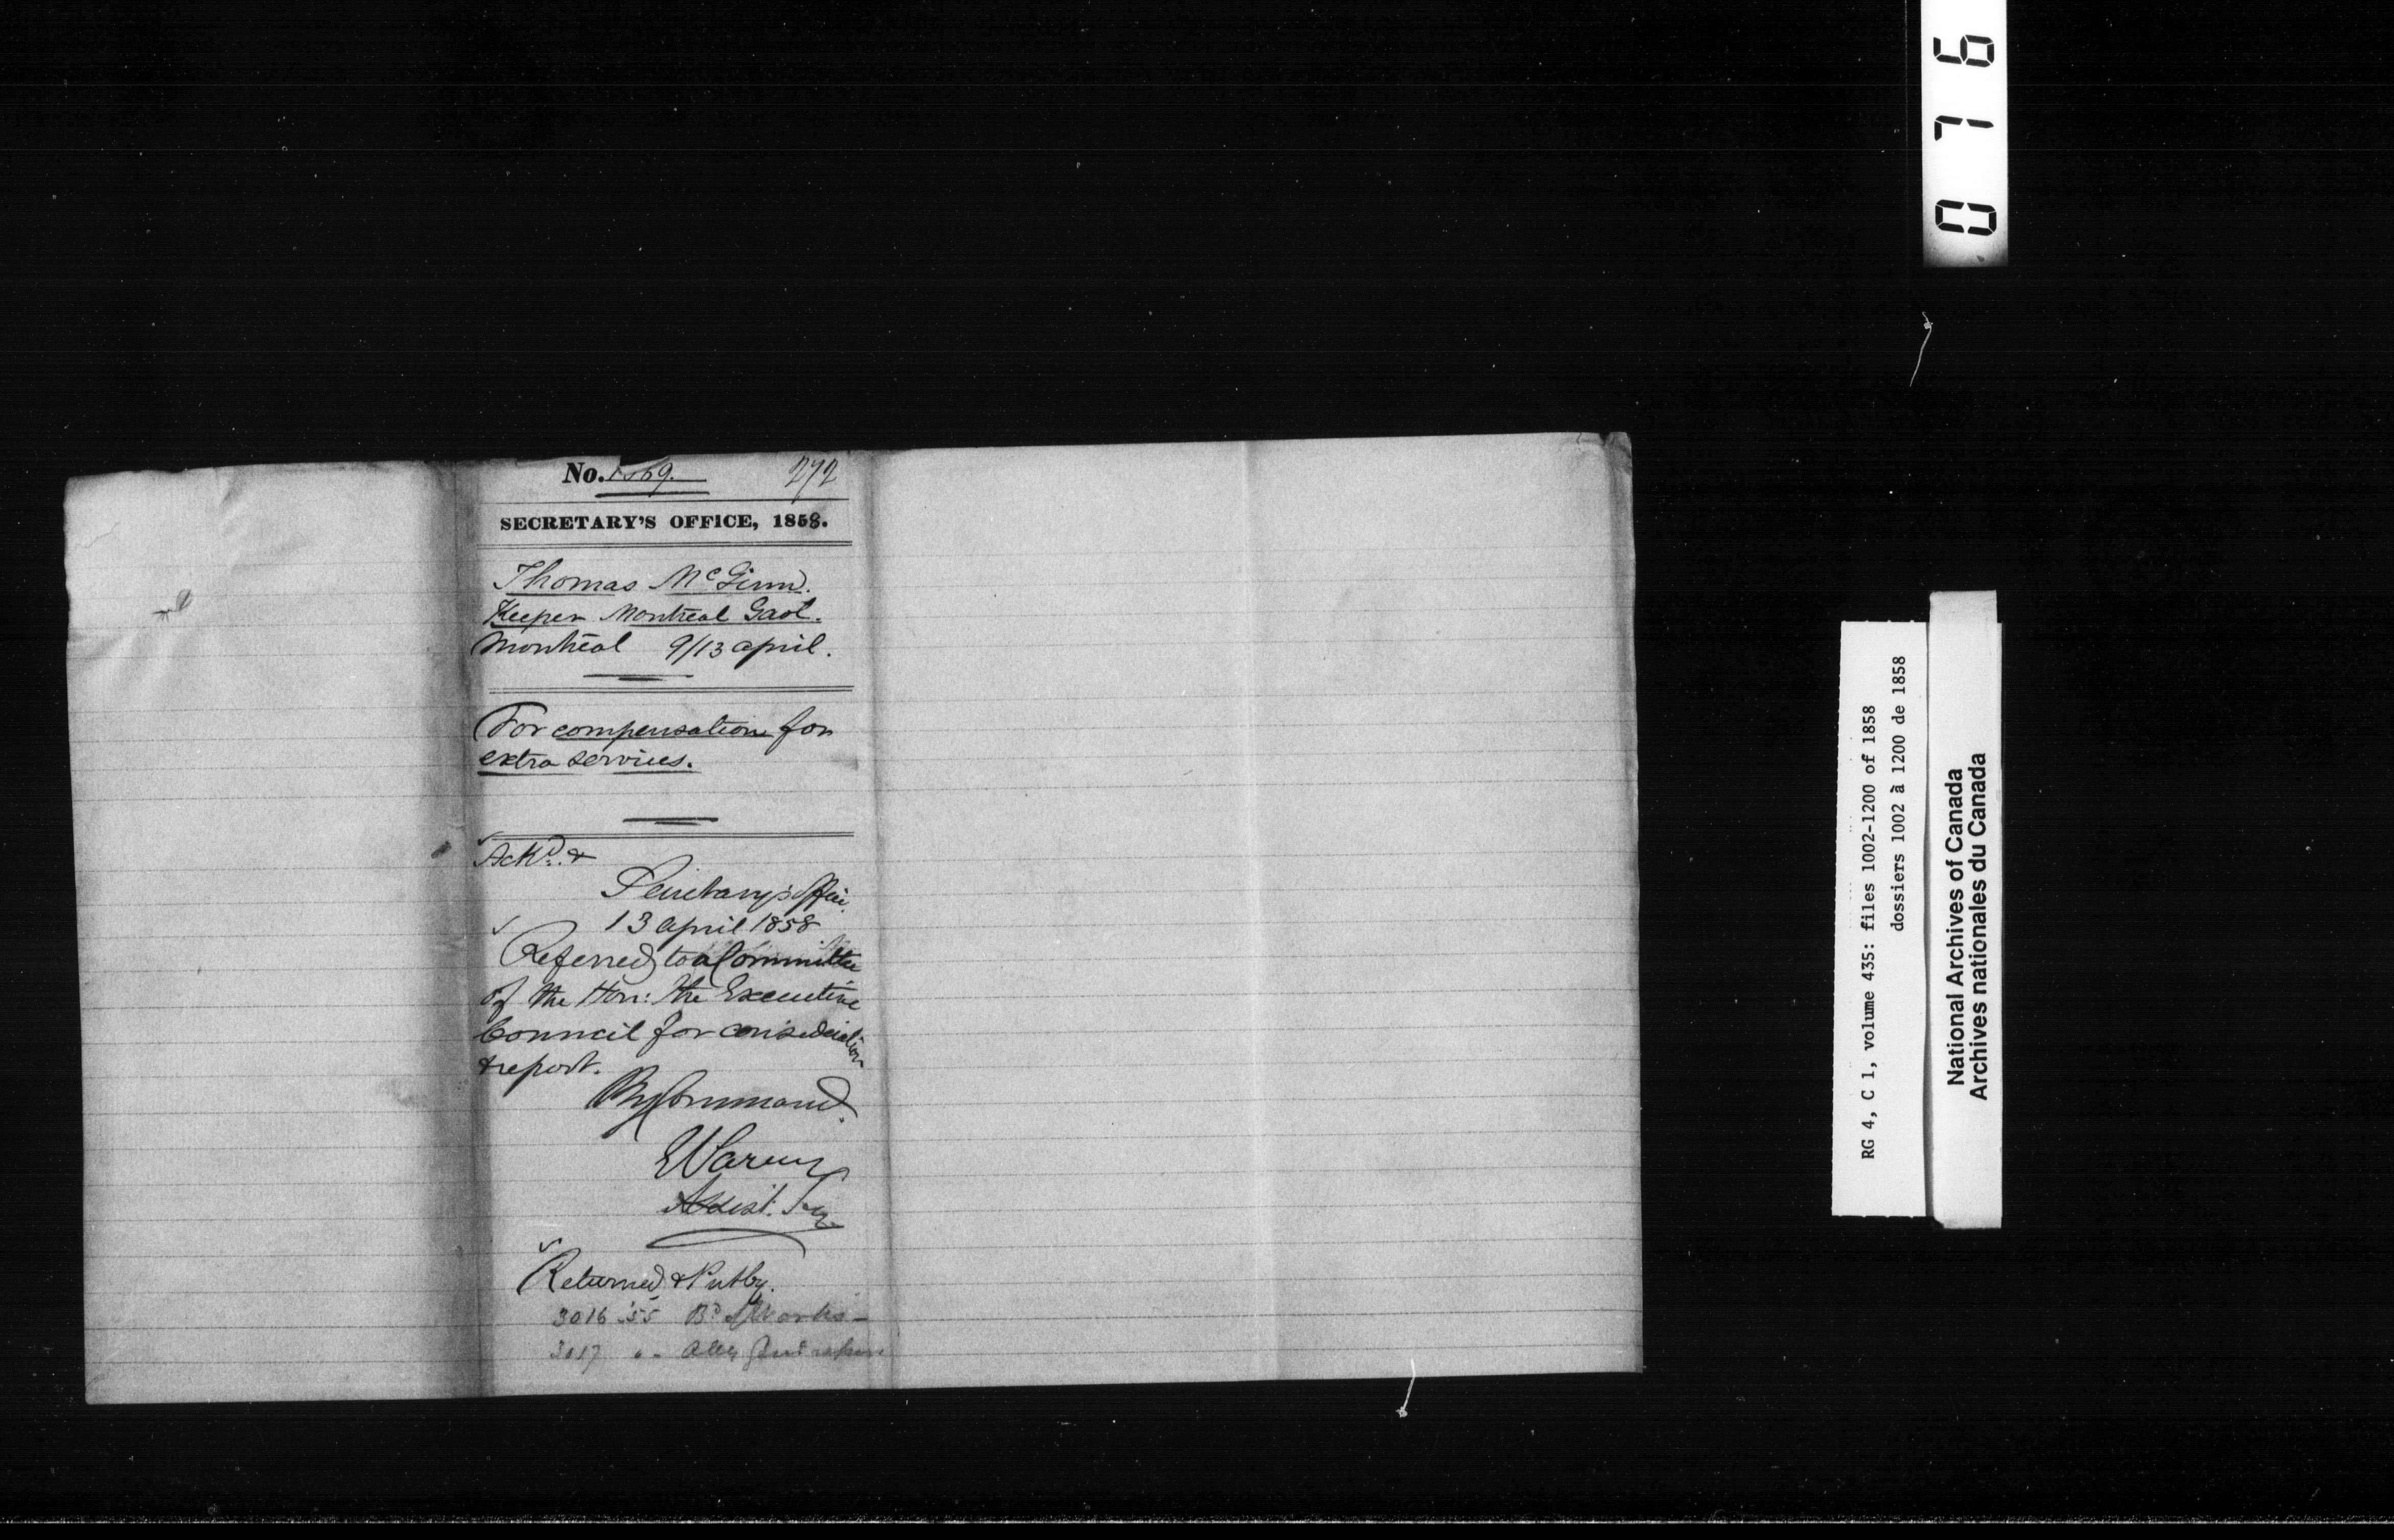 0 7 6
No. 1169. 272
SECRETARY'S OFFICE, 1858.
Thomas McGinn.
Keeper Montreal Gaol.
Montreal 9/13 april.
For compensation for
extra services.
Ackd. &
Secretary's Office
13 april 1858
Referred to a Committee
of the Hon: the Executive
Council for consideration
& report.
By Command.
Assist. Secy.
Returned & Put by.
3016 '55 Bd of Works -
3017 " -
RG 4, C 1, volume 435: files 1002-1200 of 1858
dossiers 1002 à 1200 de 1858
National Archives of Canada
Archives nationales du Canada